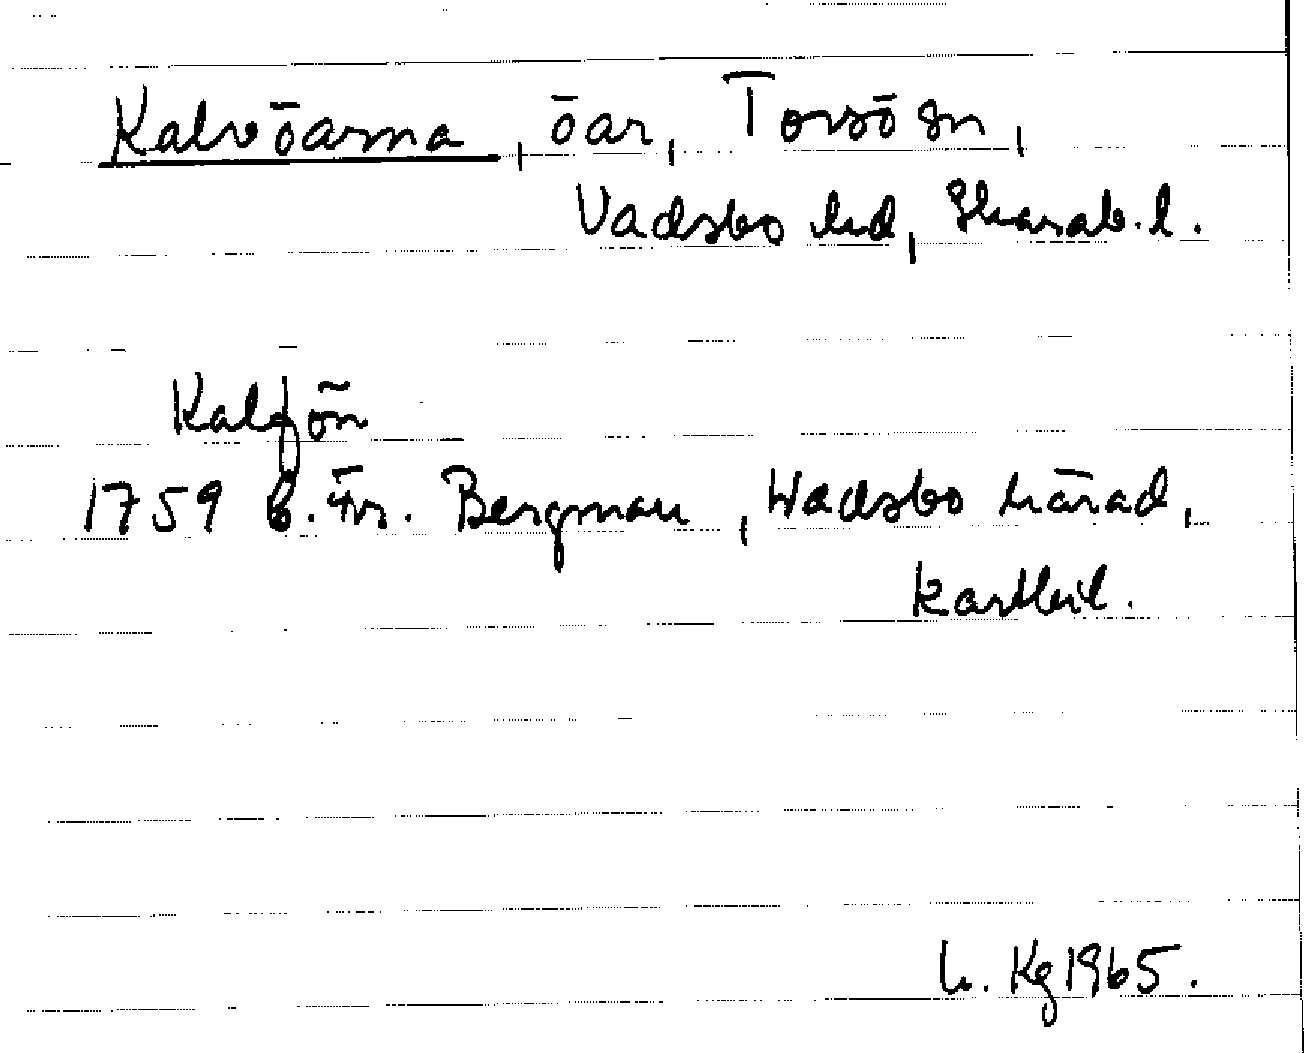 Kalvöarna, öar, Torsö sn,
Vadsbo hd, Skarab. l.
Kalfön
1759 b. Fr. Bergman, Wadsbo härad,
kartbil.
L. Kg 1965.